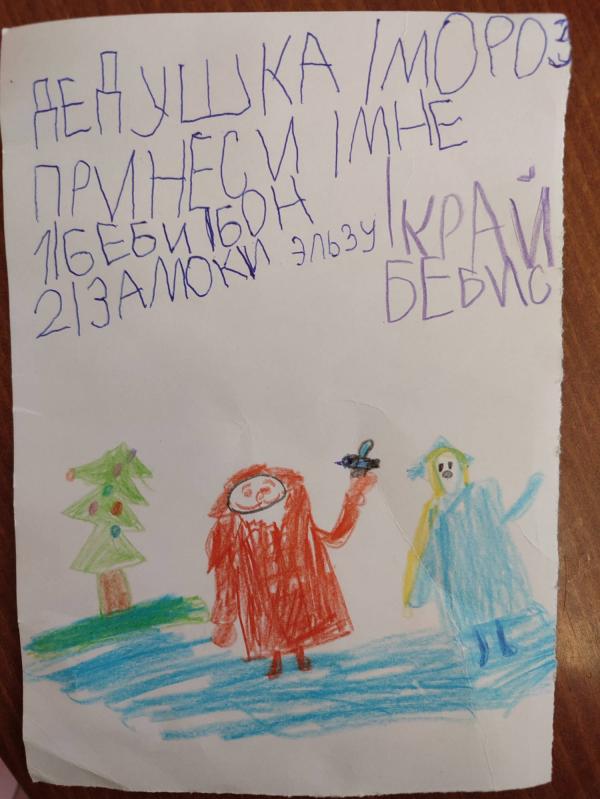 ДЕДУШКА МОРОЗ
ПРИНЕСИ МНЕ
1 БЕБИ БОН
2 ЗАМОКИ ЭЛЬЗУ
КРАЙ
БЕБИС